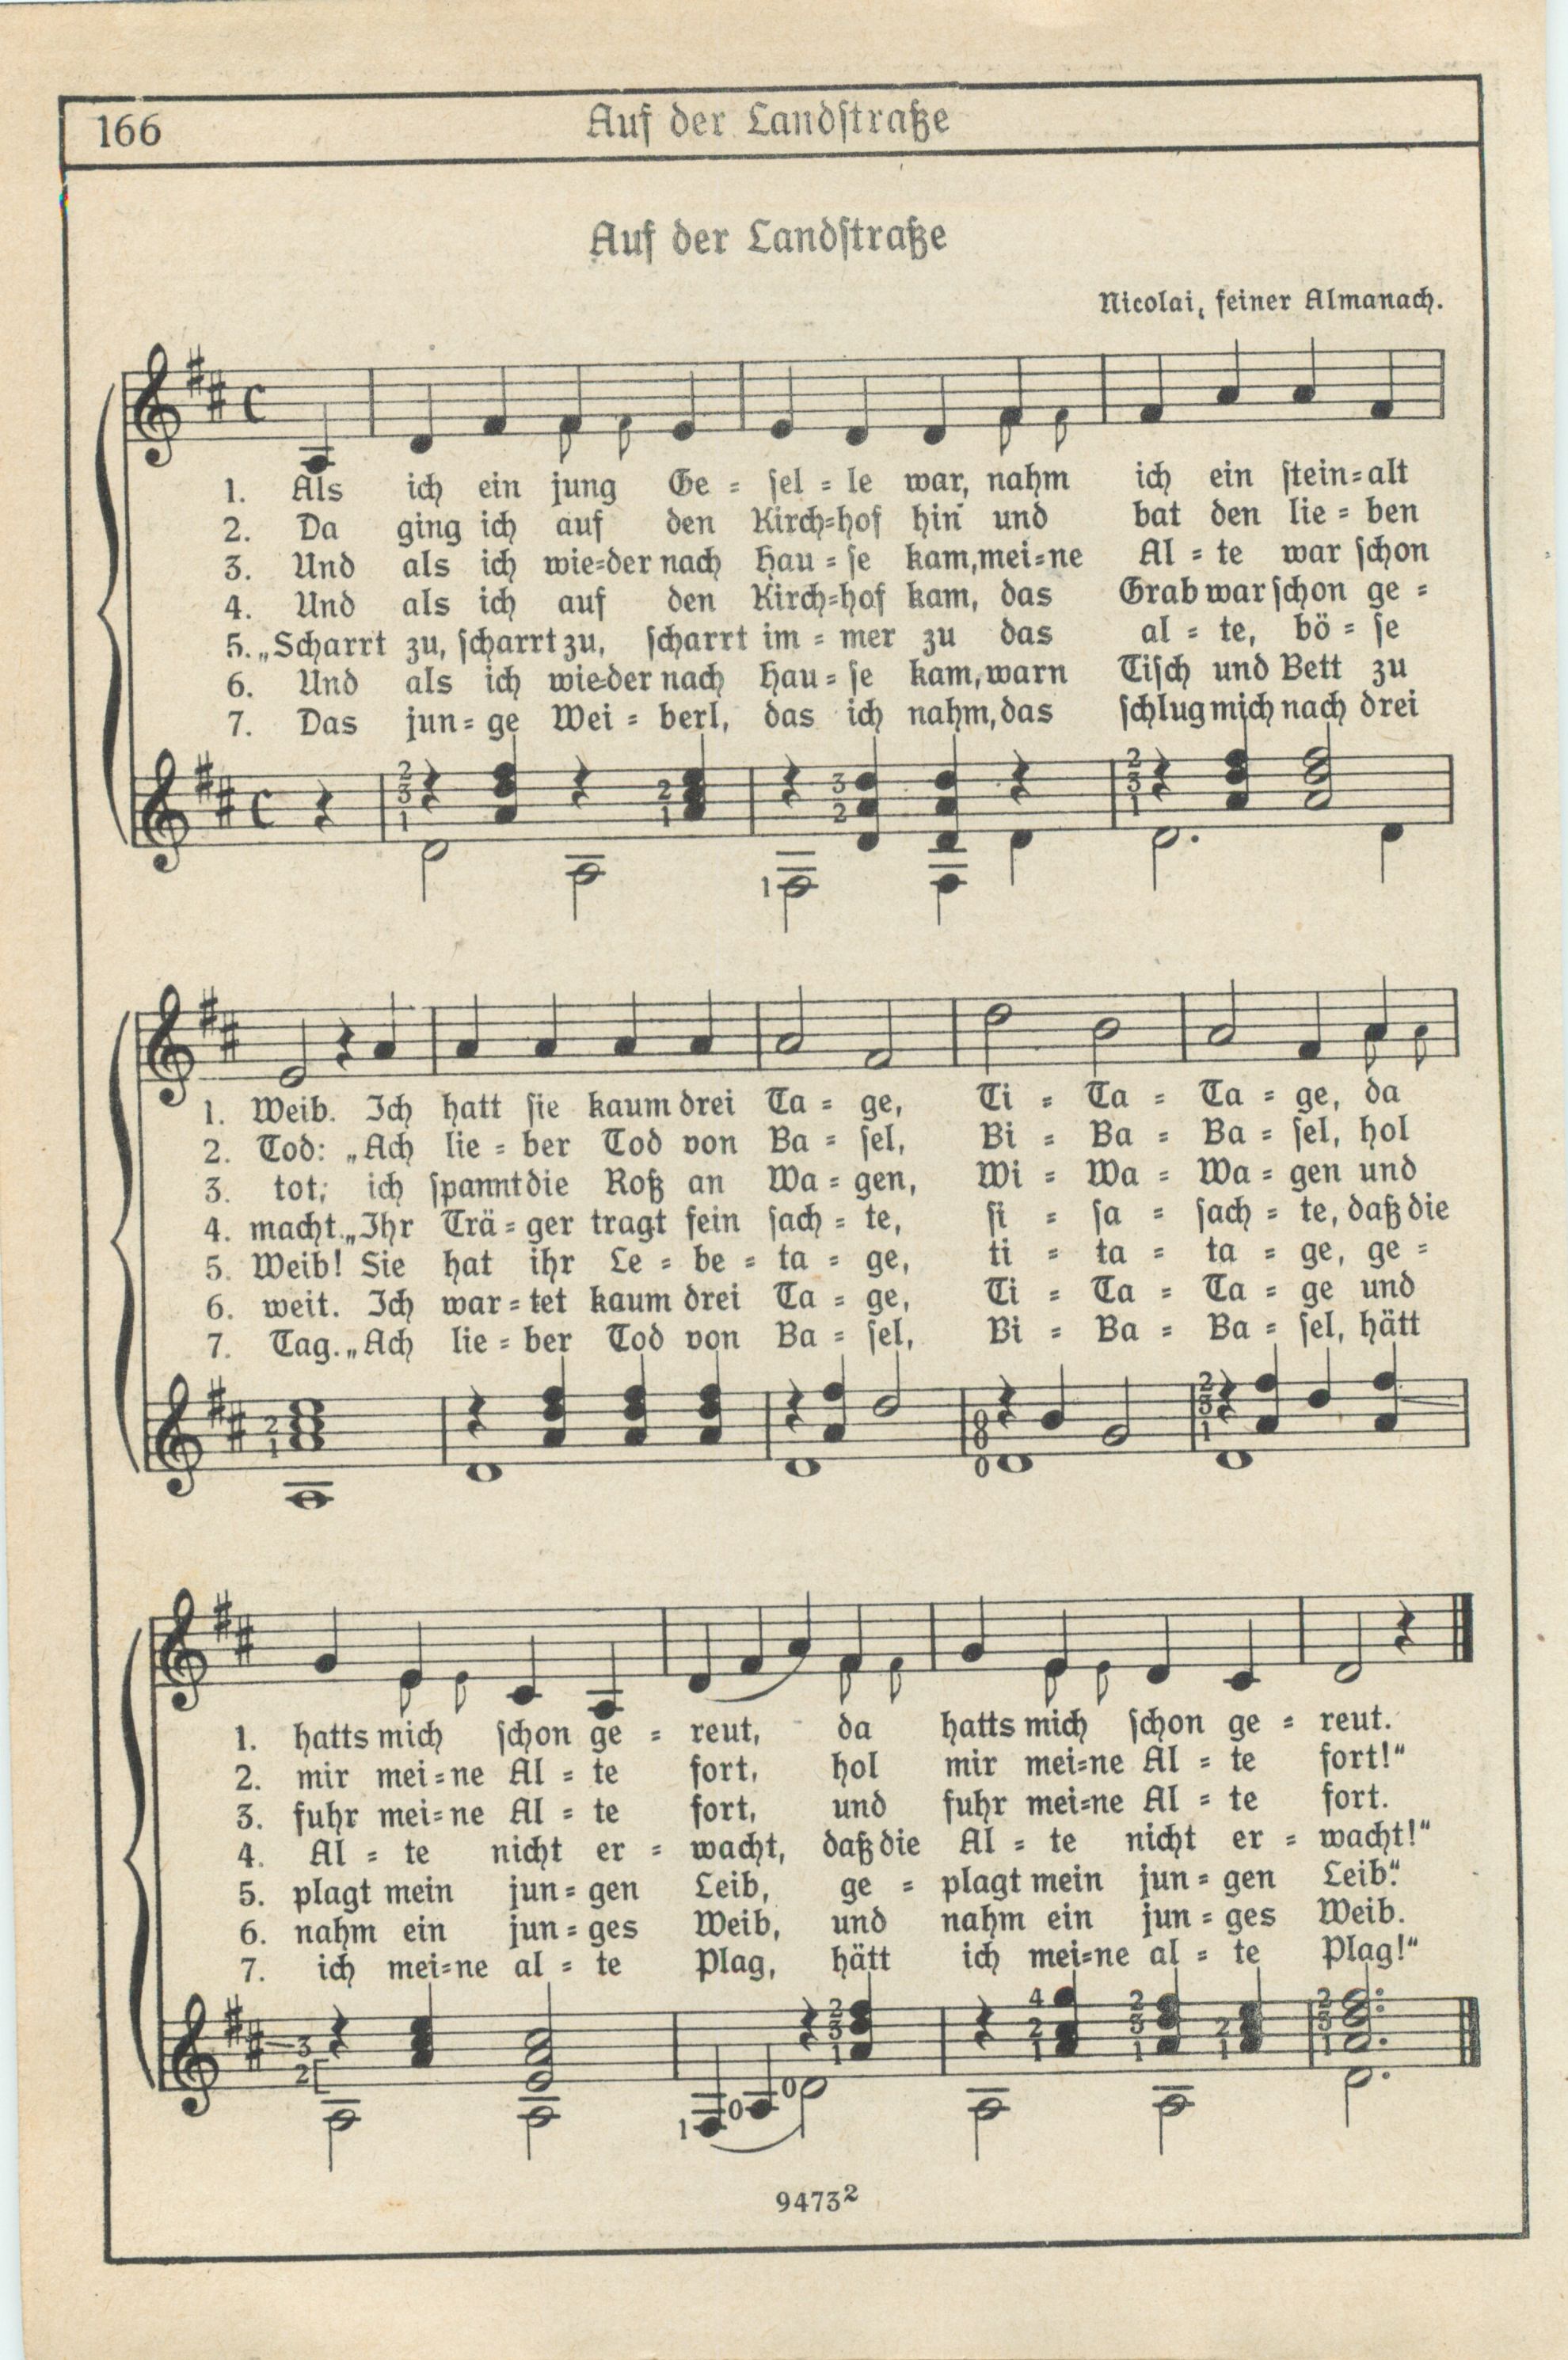 166
Auf der Landſtraße
Auf der Landſtraße
Nicolai, feiner Almanach.
1. Als ich ein jung Ge = ſel = le war, nahm ich ein ſtein=alt
2. Da ging ich auf den Kirch=hof hin und bat den lie = ben
3. Und als ich wie=der nach Hau = ſe kam, mei=ne Al = te war ſchon
4. Und als ich auf den Kirch=hof kam, das Grab war ſchon ge =
5. „Scharrt zu, ſcharrt zu, ſcharrt im = mer zu das al = te, bö = ſe
6. Und als ich wie=der nach Hau = ſe kam, warn Tiſch und Bett zu
7. Das jun = ge Wei = berl, das ich nahm, das ſchlug mich nach drei
2
3
1
2
1
3
2
1
2
3
1
1. Weib. Ich hatt ſie kaum drei Ta = ge, Ti = Ta = Ta = ge, da
2. Tod: „Ach lie = ber Tod von Ba = ſel, Bi = Ba = Ba = ſel, hol
3. tot; ich ſpannt die Roß an Wa = gen, Wi = Wa = Wa = gen und
4. macht. „Ihr Trä = ger tragt fein ſach = te, ſi = ſa = ſach = te, daß die
5. Weib! Sie hat ihr Le = be = ta = ge, ti = ta = ta = ge, ge =
6. weit. Ich war = tet kaum drei Ta = ge, Ti = Ta = Ta = ge und
7. Tag. „Ach lie = ber Tod von Ba = ſel, Bi = Ba = Ba = ſel, hätt
2
1
0
2
3
1
1. hatts mich ſchon ge = reut, da hatts mich ſchon ge = reut.
2. mir mei=ne Al = te fort, hol mir mei=ne Al = te fort!“
3. fuhr mei=ne Al = te fort, und fuhr mei=ne Al = te fort.
4. Al = te nicht er = wacht, daß die Al = te nicht er = wacht!“
5. plagt mein jun = gen Leib, ge = plagt mein jun = gen Leib.“
6. nahm ein jun = ges Weib, und nahm ein jun = ges Weib.
7. ich mei=ne al = te Plag, hätt ich mei=ne al = te Plag!“
3
2
1
0
0
2
3
1
4
2
1
2
3
1
2
1
2
3
1
9473²